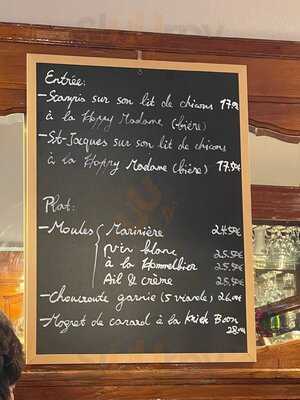 Entrée:
- Scampis sur son lit de chicons 17.50
à la Happy Madame (bière)
- St-Jacques sur son lit de chicons
à la Happy Madame (bière) 17,50€
Plat:
- Moules Marinière 24.50€
vin blanc 25.50€
à la Hommelbier 25.50€
Ail & crème 25.50€
- Choucroute garnie (5 viandes) 26.00€
- Magret de canard à la Kriek Boon
28.00€